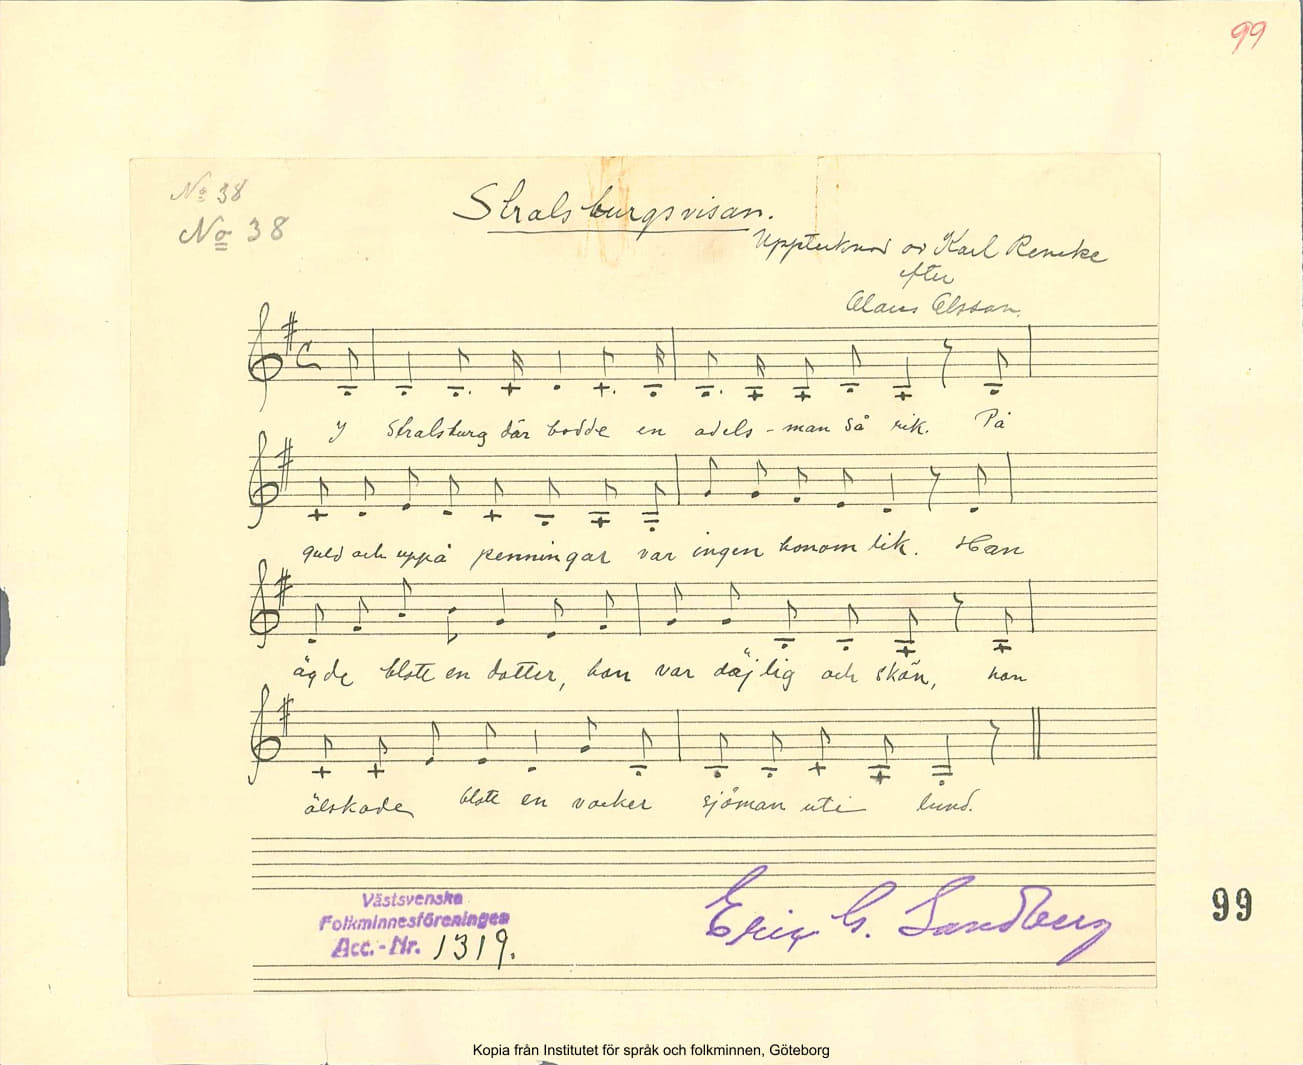 99
No 38
No 38
Stralsburgsvisan.
Upptecknad av Karl Reneke
efter
Olaus Olsson.
I Stralsburg där bodde en adels-man så rik. På
guld och uppå penningar var ingen honom lik. Han
ägde blott en dotter, hon var däjlig och skön, hon
älskade blott en vacker sjöman uti lund.
Västsvenska
Folkminnesföreningen
Acc.-Nr. 1319.
Eric G. Sandberg
99
Kopia från Institutet för språk och folkminnen, Göteborg